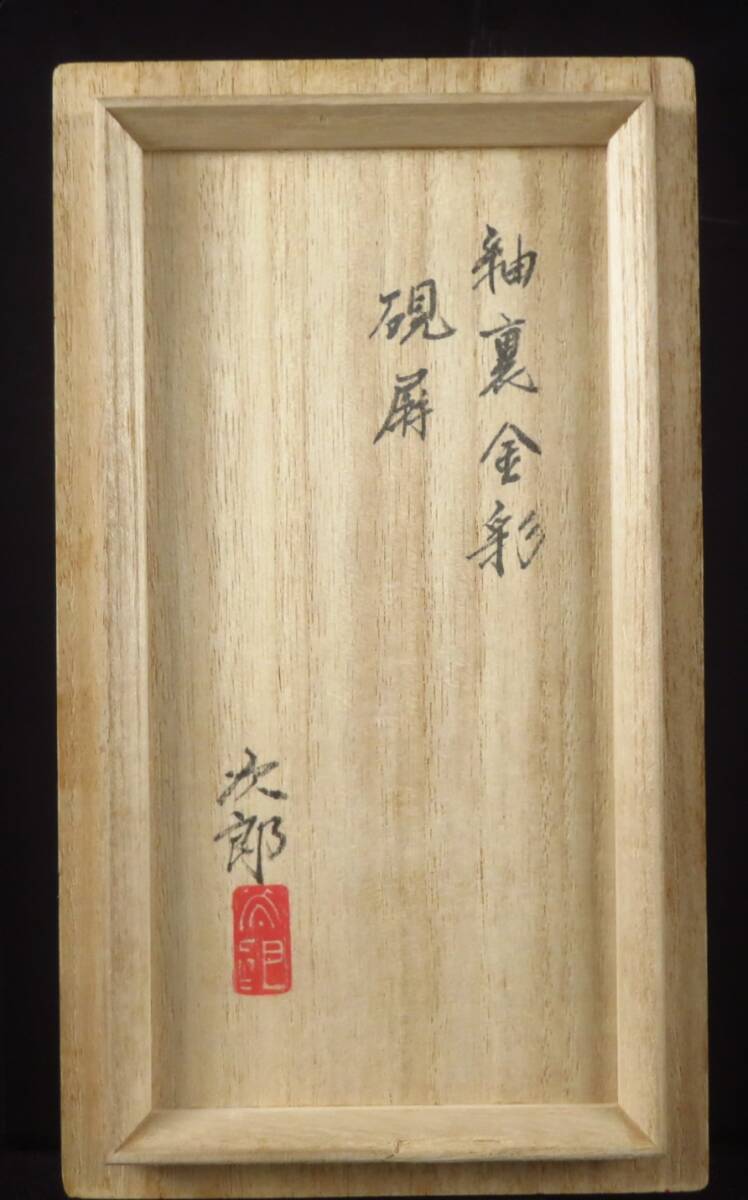 釉裏金彩
硯屏
次郎